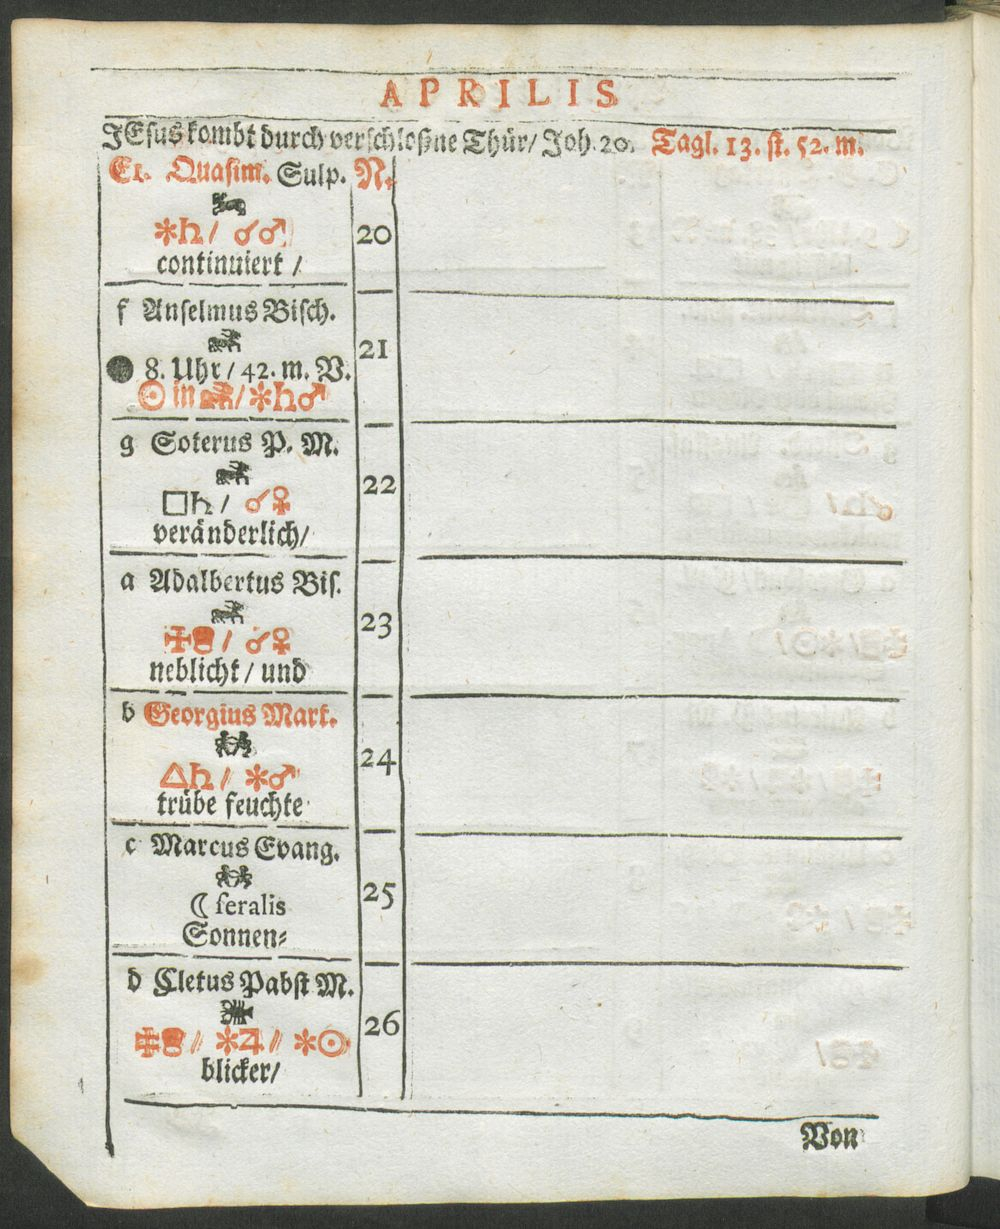 APRILIS
JEsus kombt durch verschloßne Thür/ Joh. 20. Tagl. 13. st. 52. m.
E1. Quasim. Sulp. N.
✻♄/ ☌♂ 20
continuiert /
f Anselmus Bisch.
21
● 8. Uhr / 42. m. V.
☉ in ♉/ ✻♄♂
g Soterus P. M.
22
□♄/ ☌♀
veränderlich/
a Adalbertus Bis.
23
✠ / ☌♀
neblicht / und
b Georgius Mart.
24
△♄/ ✻♂
trübe feuchte
c Marcus Evang.
25
☾ feralis
Sonnen⸗
d Cletus Pabst M.
26
✠ / ✻♃/ ✻☉
blicker/
Von